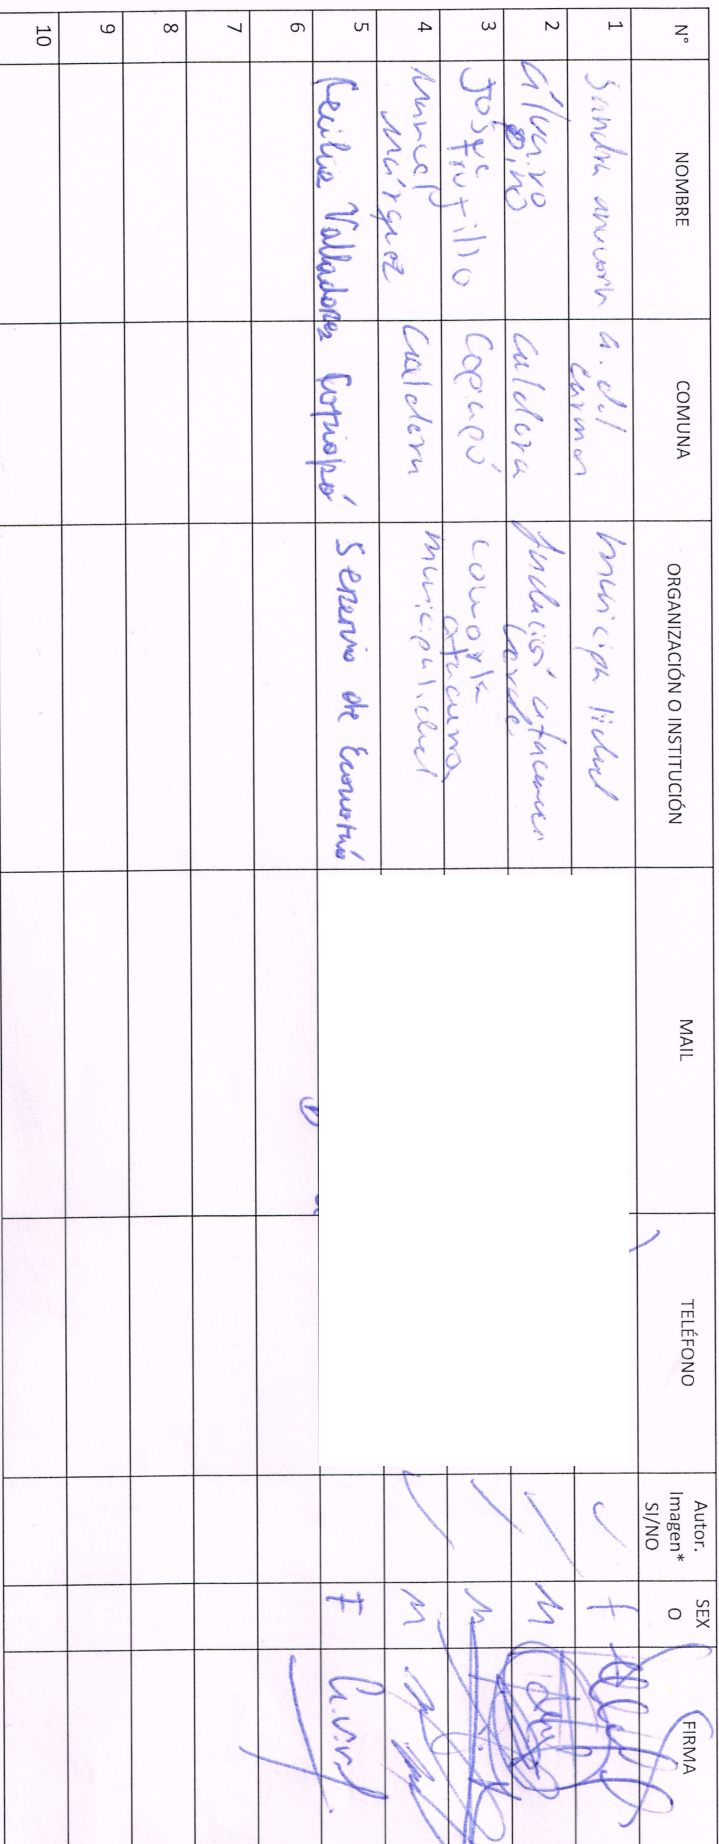 N° NOMBRE COMUNA ORGANIZACIÓN O INSTITUCIÓN MAIL TELÉFONO Autor. Imagen* SI/NO SEXO FIRMA
1 Sandra a. del Carmen Municipalidad F
2 Álvaro Pino Caldera Fundación atacama M
3 Trujillo Copiapó atacama M
4 Manuel Márquez Caldera Municipalidad M
5 Cecilia Valladares Copiapó Seremia de Economía F
6
7
8
9
10